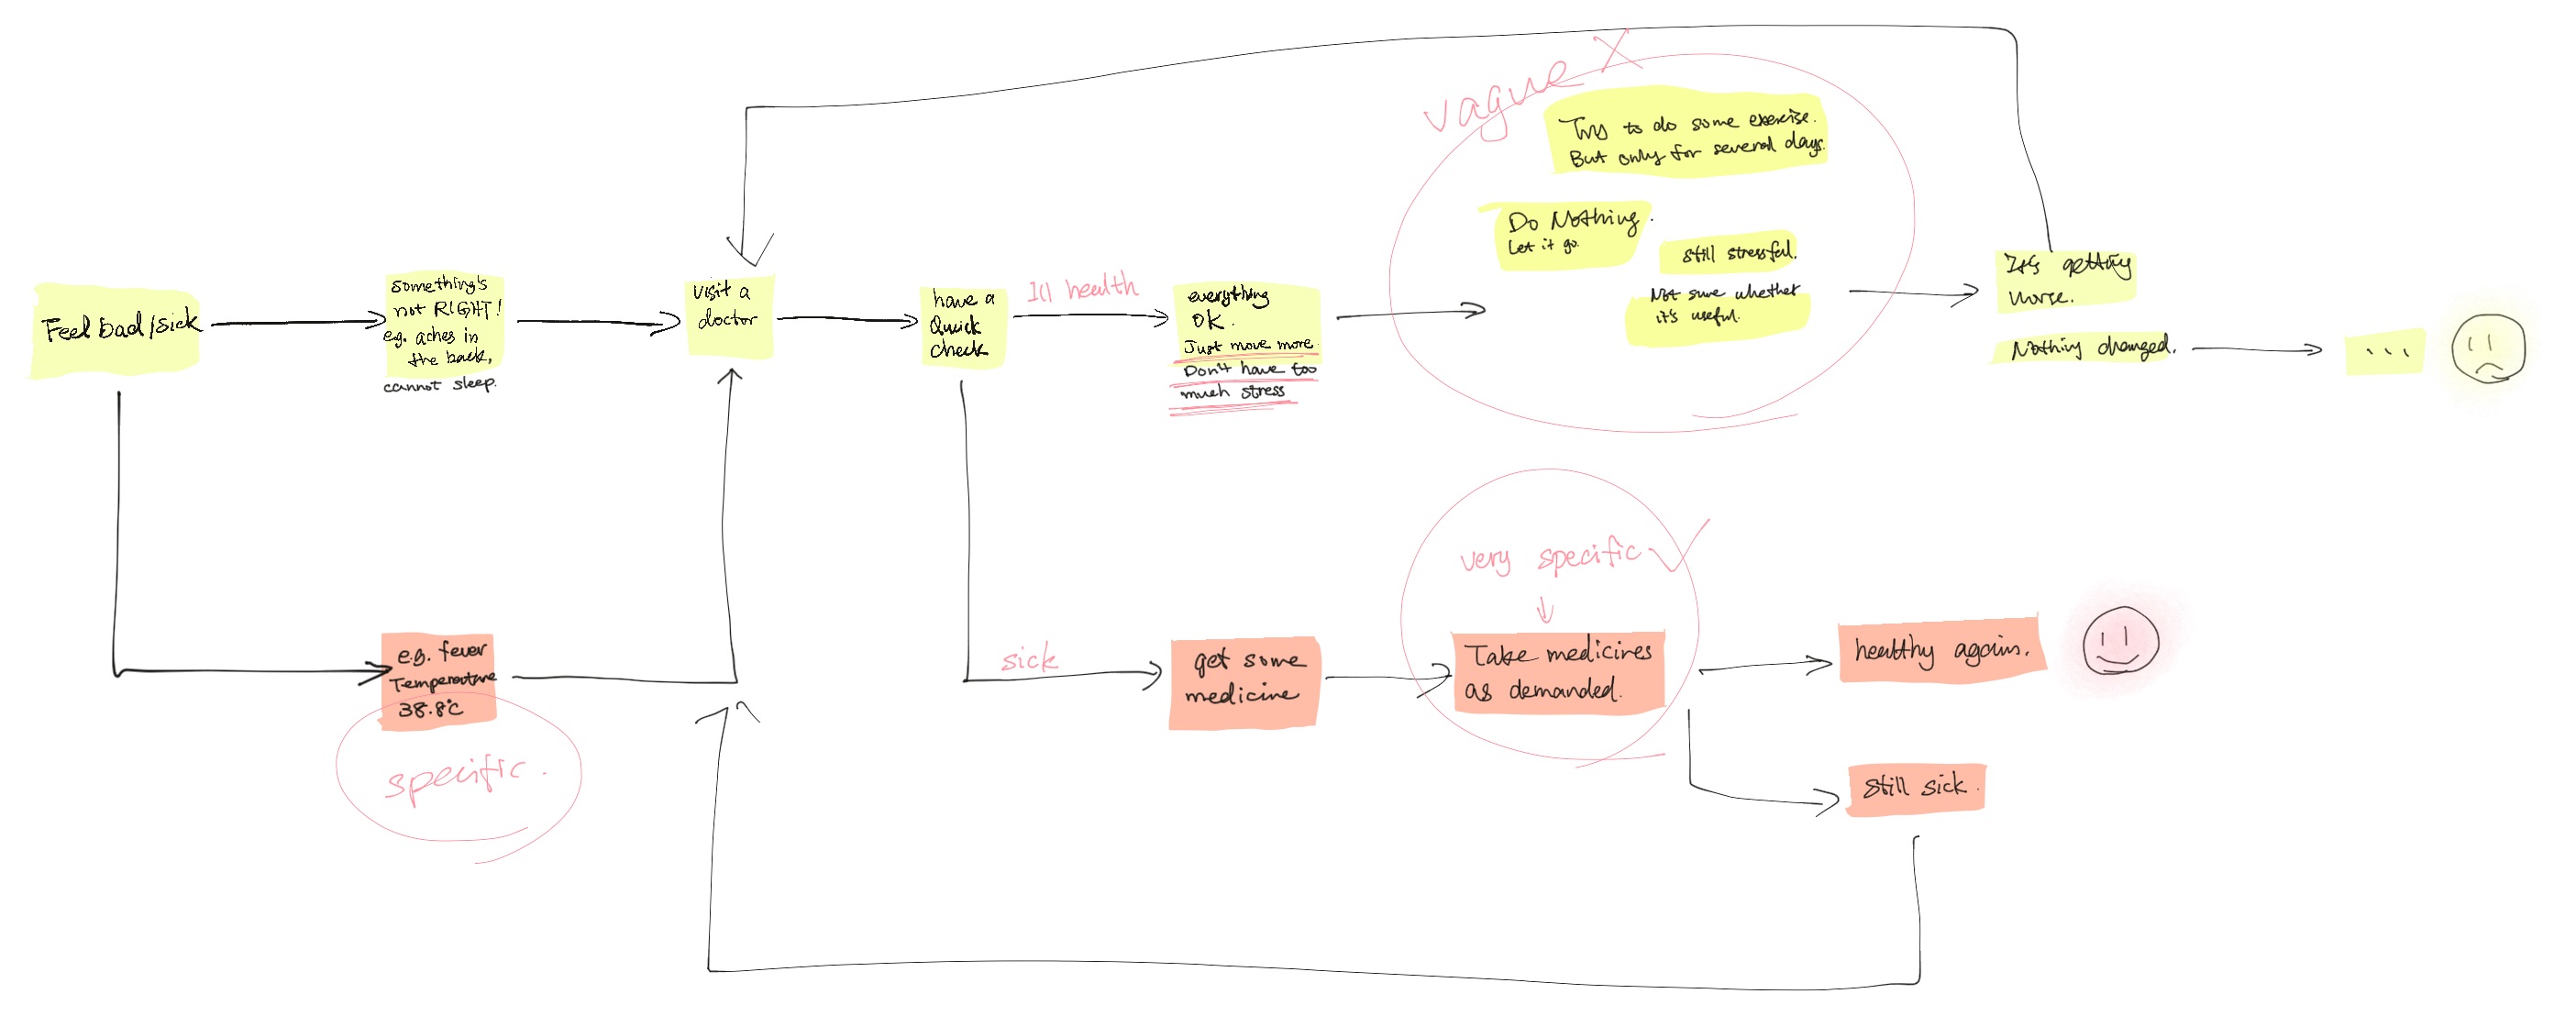 Feel bad/sick
something's
not RIGHT!
e.g. aches in
the back,
cannot sleep.
visit a
doctor
have a
Quick
check
Ill health
everything
OK.
Just move more.
Don't have too
much stress
vague X
Try to do some exercise.
But only for several days.
Do Nothing.
Let it go.
Still stressful.
Not sure whether
it's useful.
It's getting
worse.
Nothing changed.
...
e.g. fever
Temperature
38.8°C
specific.
sick
get some
medicine
very specific
Take medicines
as demanded.
healthy again.
Still sick.